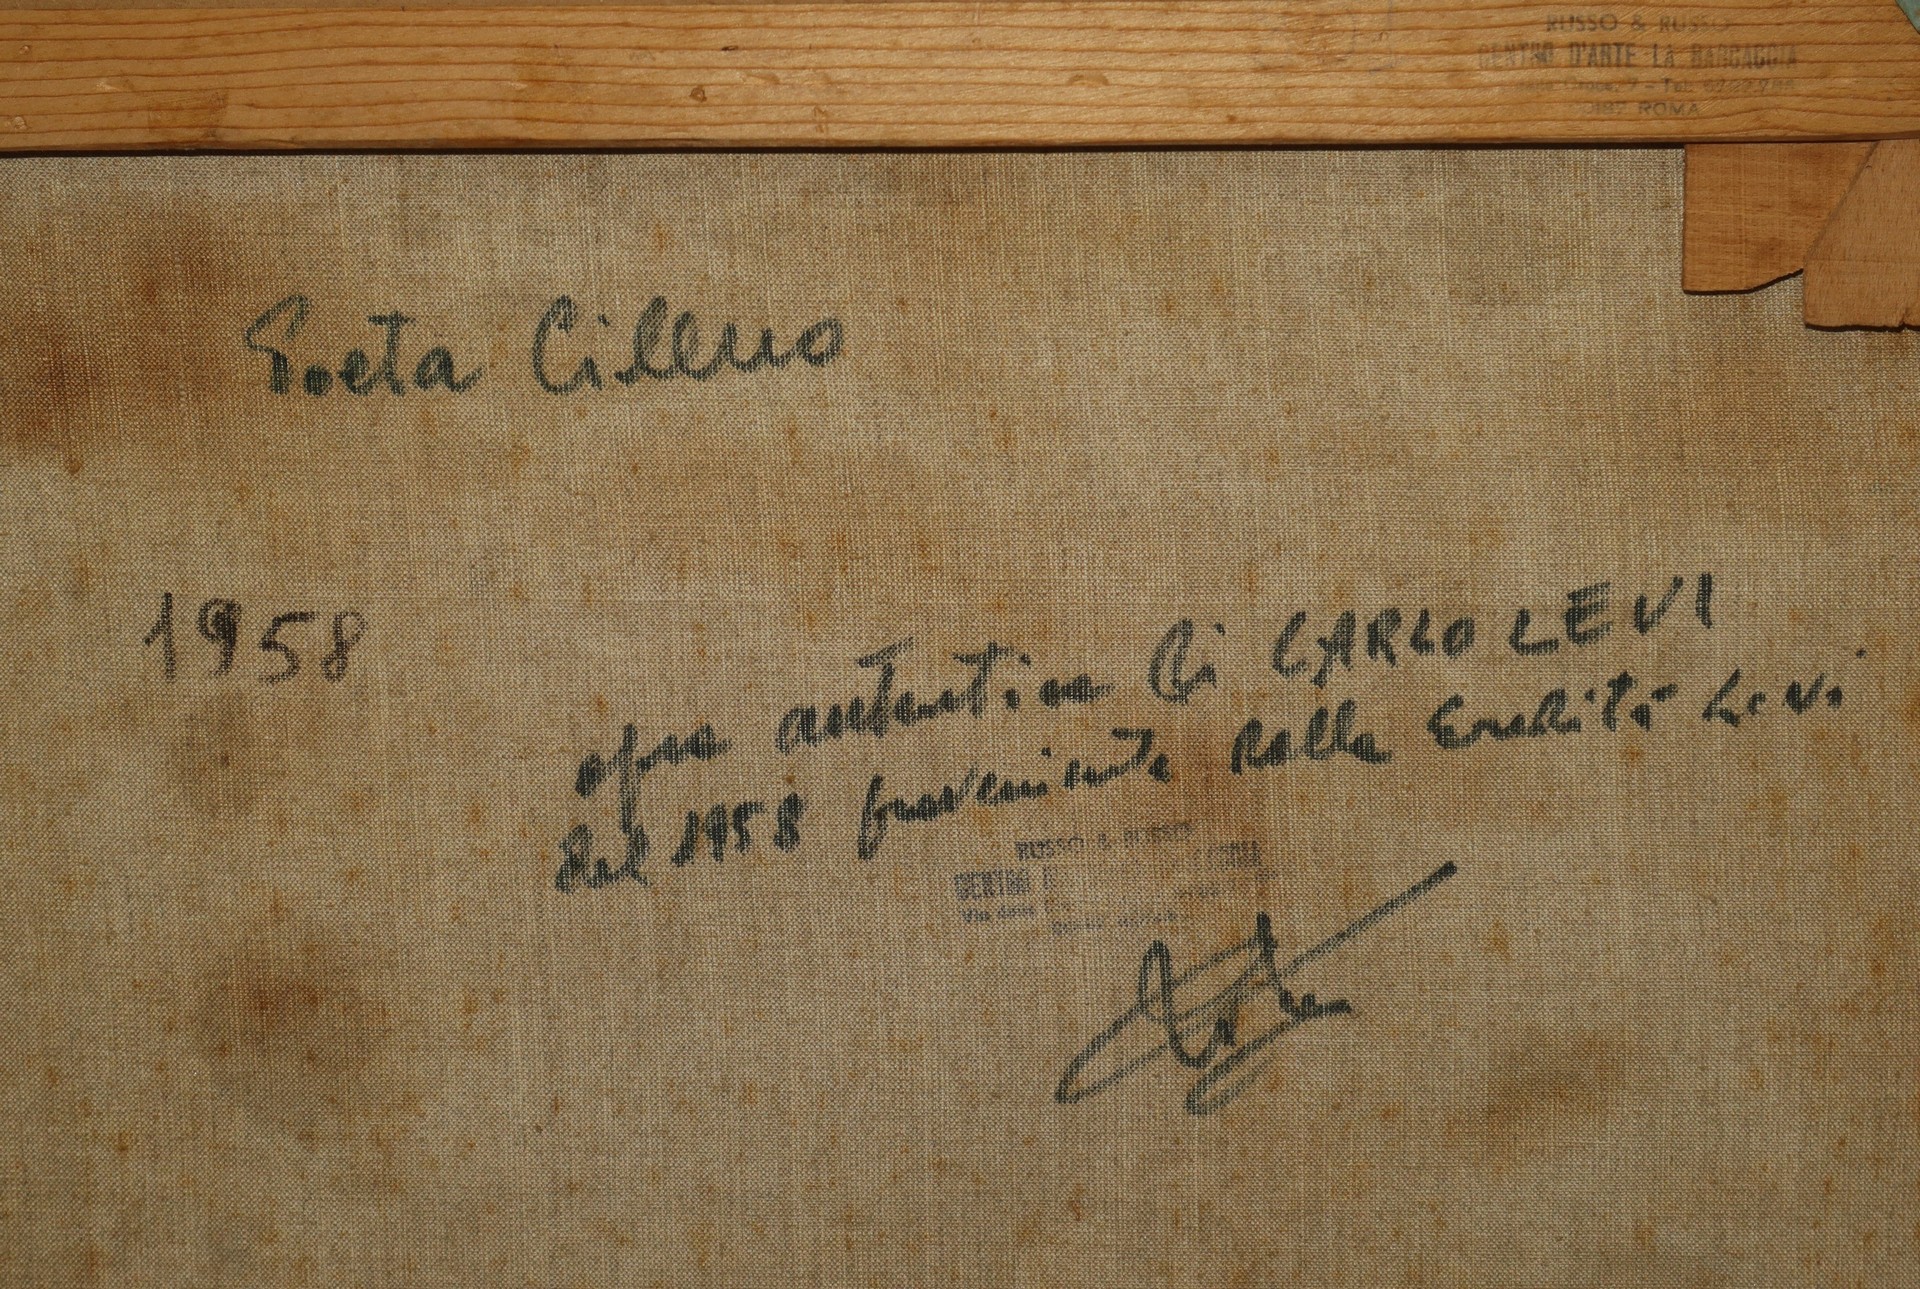 RUSSO & RUSSO
CENTRO D'ARTE LA BARCACCIA
ROMA
Poeta Cileno
1958
opera autentica di CARLO LEVI
del 1958 proveniente dalla Eredità Levi
RUSSO & RUSSO
CENTRO
Via